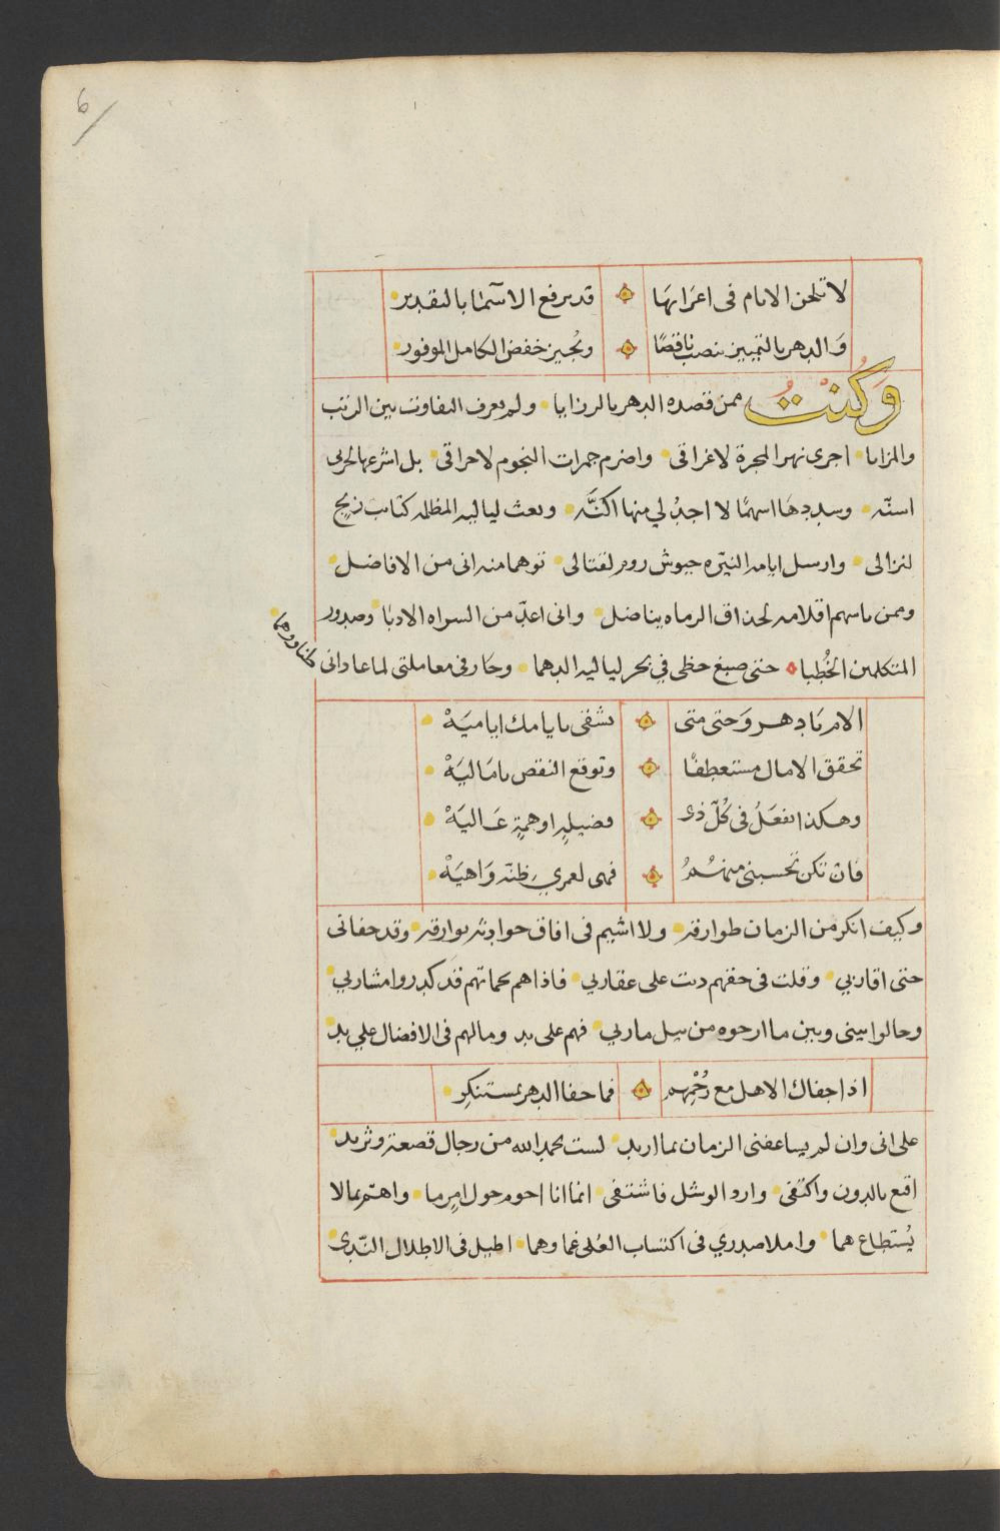 6
لا تلحن الايام في اعرابها قد يرفع الاسماء بالتقدير
والدهر بالتمييز ينصب ناقصًا ويُجيز خفض الكامل الموفور
وَكُنتُ ممن قصده الدهر بالرزايا ولم يعرف التفاوت بين الرتب
والمزايا اجرى نهر المجرة لاغراقي واضرم جمرات النجوم لاحراقي بل اشرعها لحربي
اسنّه وسددها اسهمًا لا اجدُ لي منها اكنَّه وبعث لياليه المظلمه كتائب زنج
لنزالي وارسل ايامه النيّره جيوش روم لقتالي توهما منه اني من الافاضل
وممن باسهم اقلامه لحذاق الرماه يناضل واني اعدّ من السراه الادبا وصدور
المتكلمين الخُطبا حتى صبغ حظي في بحر لياليه الدهما وجار في معاملتي لما عاداني ظنا ووهما
الام يا دهر وحتى متى تشقى بايامك اياميَهْ
تحقق الامال مستعطفًا وتوقع النقص باماليَهْ
وهكذا تفعَلُ في كُلّ ذي فضيلةٍ او همةٍ عَاليَهْ
فان تكن تحسبني منهمُ فهي لعمري ظنّه وَاهيَهْ
وكيف انكر من الزمان طوارقه ولا اشيم في افاق حوادثه بوارقه وقد جفاني
حتى اقاربي وقلت في حقهم دبت على عقاربي فاذا هم بحماتهم قد كدروا مشاربي
وحالوا بيني وبين ما ارجوه من نيل ماربي فهم على يد وما لهم في الافضال علي يد
اذا جفاك الاهل مع رُحْمِهم فما جفا الدهر بمستنكِر
على اني وان لم يساعفني الزمان بما اريد لست بحمد الله من رجال قصعة وثريد
اقنع بالدون واكتفي وارد الوشل فاشتفي انما انا احوم حول امرٍ ما واهتم بما لا
يُستطاع هما واملا صدري في اكتساب العُلى غما وهما اطيل في الاطلال النّدى